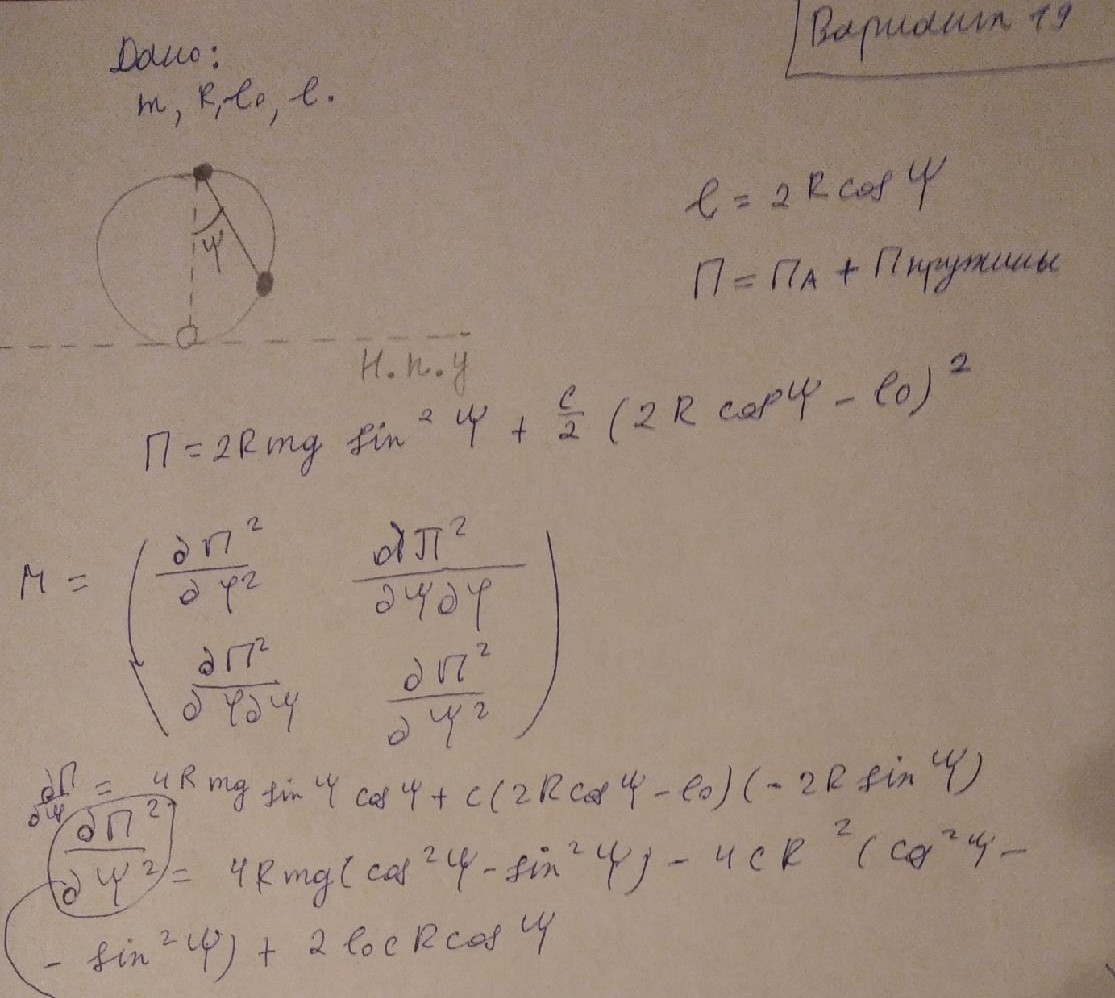 Вариант 19
Дано:
m, R, l₀, l.
l = 2R cos ψ
П = П_A + П пружины
ψ
Н.п.у
П = 2Rmg sin² ψ + c/2 (2R cos ψ - l₀)²
M = ( ∂П²/∂φ² ∂П²/∂ψ∂φ
∂П²/∂φ∂ψ ∂П²/∂ψ² )
∂П/∂ψ = 4Rmg sin ψ cos ψ + c(2R cos ψ - l₀)(-2R sin ψ)
∂П²/∂ψ² = 4Rmg(cos² ψ - sin² ψ) - 4cR² (cos² ψ -
- sin² ψ) + 2l₀cR cos ψ